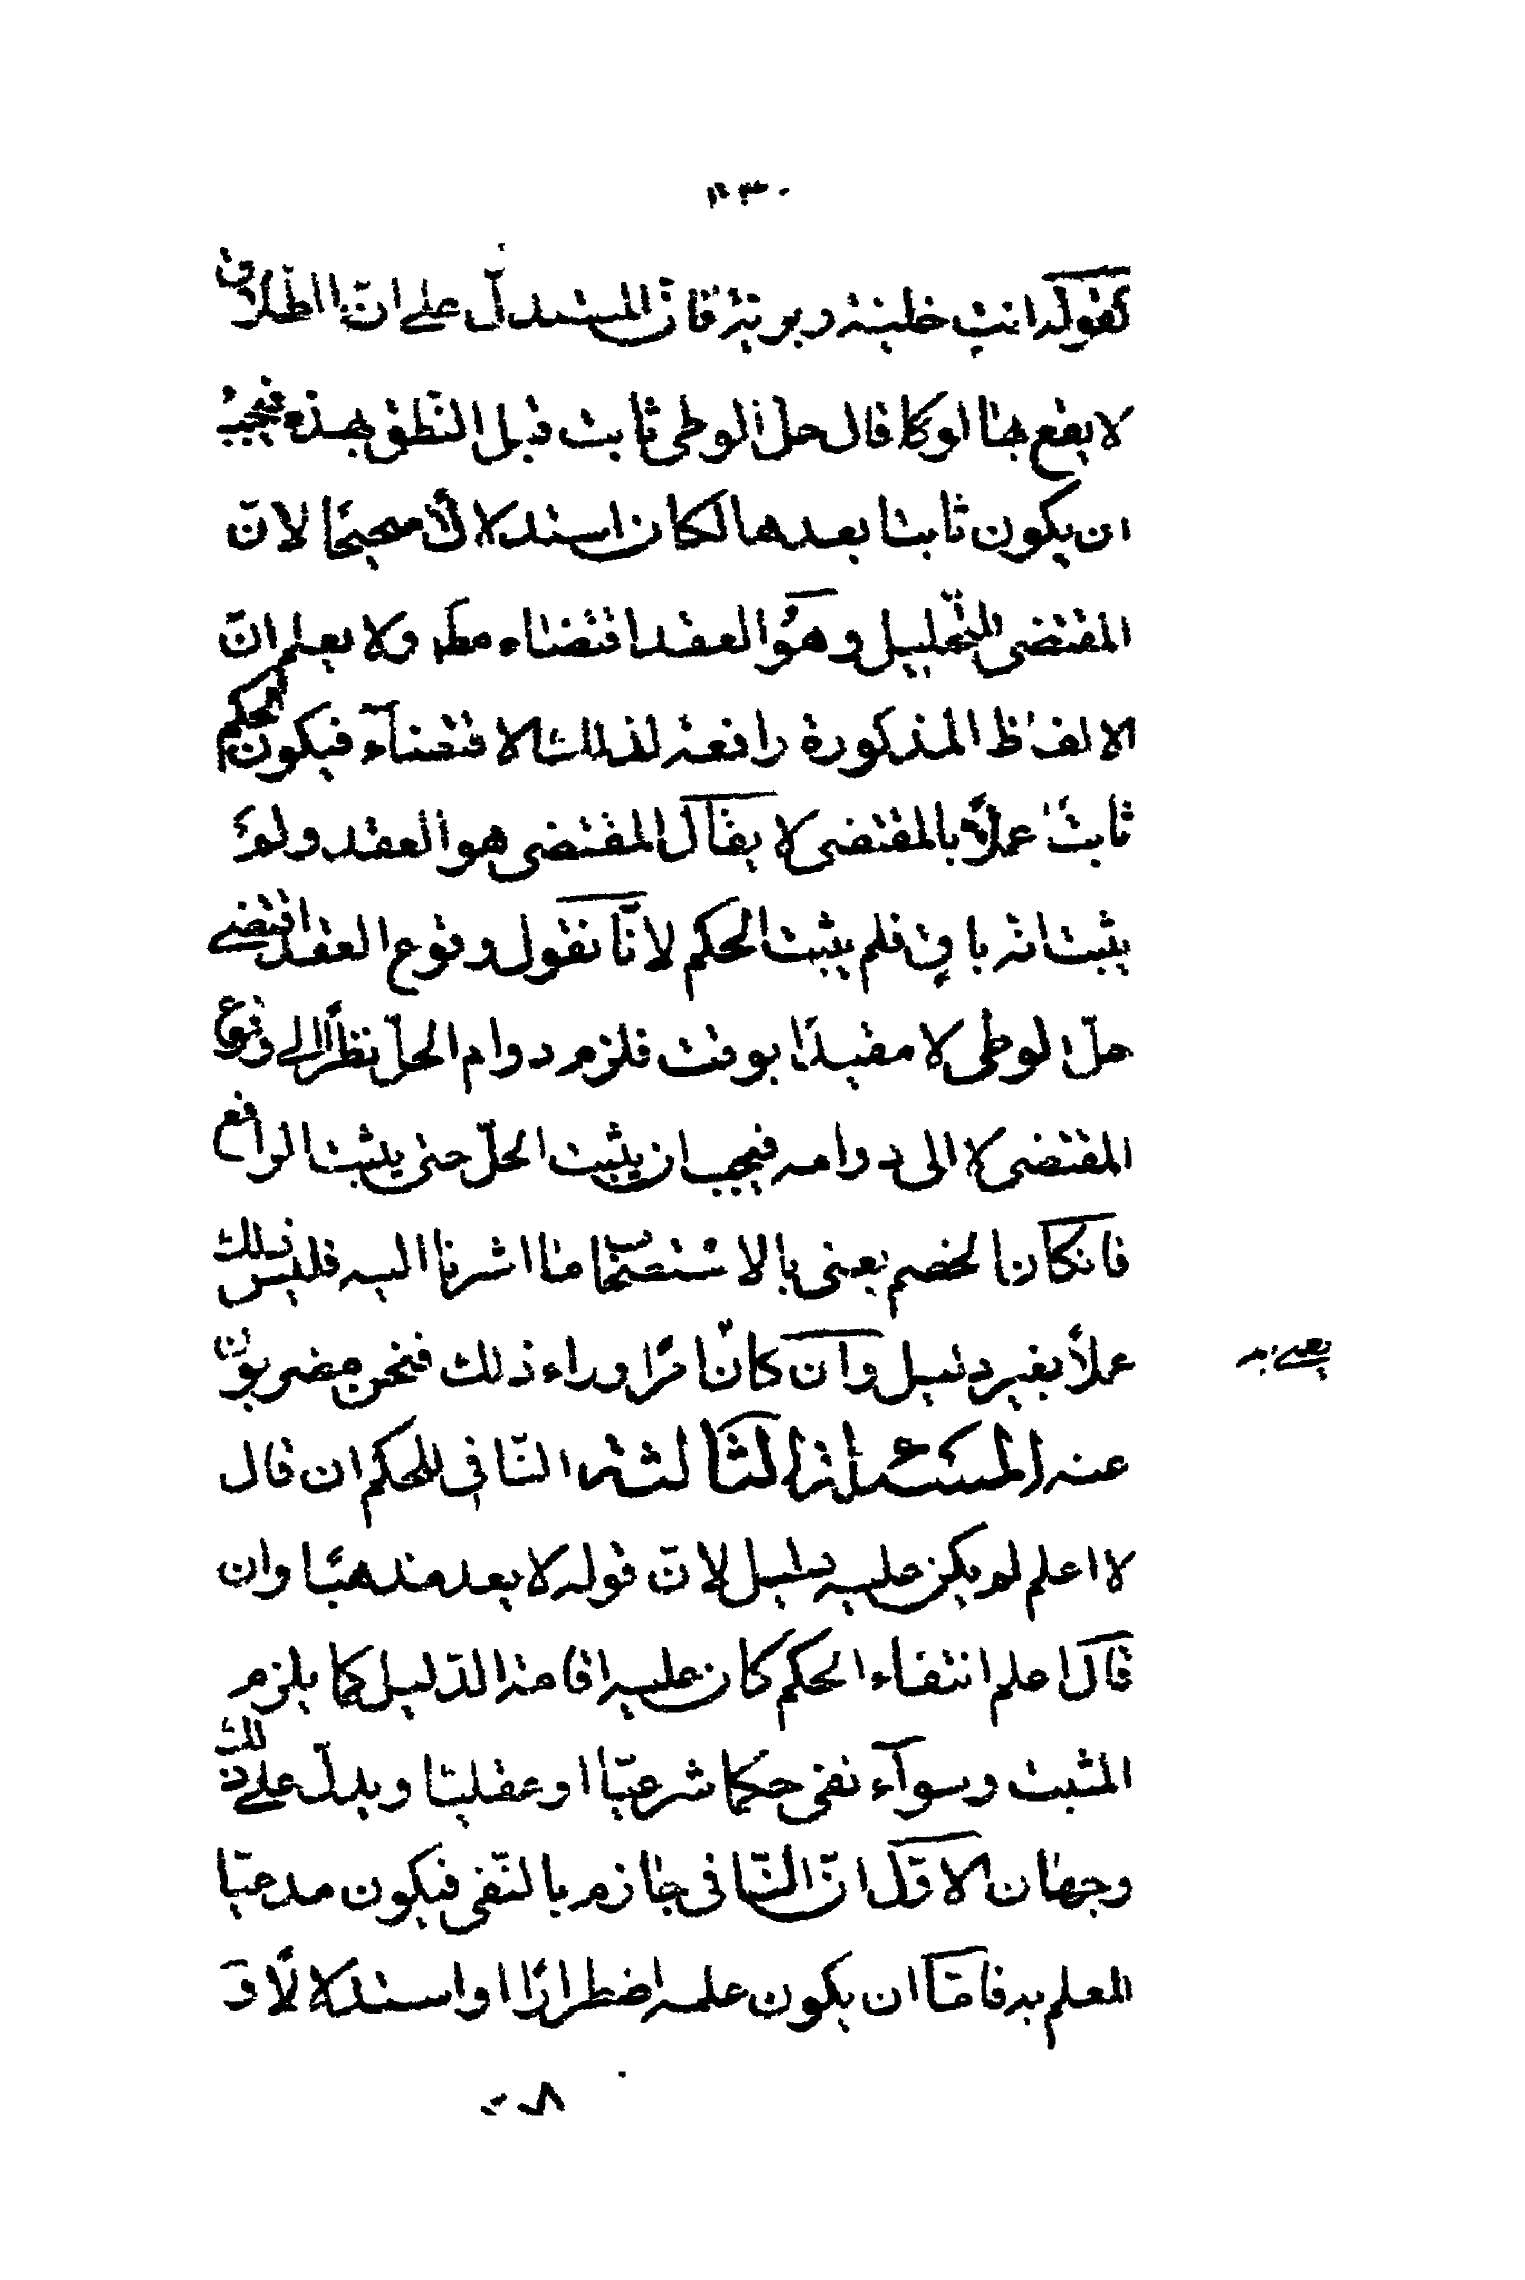 كقوله انت خلية وبرية فان المستدل على ان الطلاق
لا يقع بها لو كا قال حل الوطى ثابت قبل النطق بهذه فيجب
ان يكون ثابتا بعدها لكان استدلالا صحيحا لان
المقتضى للتحليل وهو العقد اقتضاء مط ولا يعلم ان
الالفاظ المذكورة رافعة لذلك الاقتضآء فيكون الحكم
ثابتا عملاً بالمقتضى لا يقال المقتضى هو العقد ولم
يثبت انه باق فلم يثبت الحكم لانّا نقول وقوع العقد اقتضى
حلّ الوطى لا مقيدًا بوقت فلزم دوام الحلّ نظرًا الى وقوع
المقتضى لا الى دوامه فيجب ان يثبت الحلّ حتى يثبت الرافع
فان كان الخصم يعنى بالاستصحاب ما اشرنا اليه فليس ذلك
عملاً بغير دليل وان كان امرًا وراء ذلك فنحن مضربون
عنه المسئلة الثالثة النّافى للحكم ان قال
لا اعلم لم يكن عليه دليل لانّ قوله لا يعد مذهبًا وان
قال اعلم انتفاء الحكم كان عليه اقامة الدّليل كما يلزم
المثبت وسوآء نفى حكما شرعيّا او عقليّا ويدلّ على ذلك
وجهان الاوّل انّ النّافى جازم بالنّفى فيكون مدعيّا
العلم به فامّا ان يكون علمه اضطرارًا او استدلالًا و